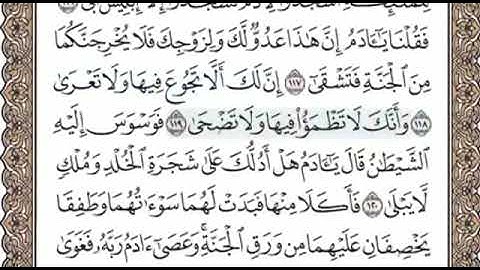 لِلْمَلَٰٓئِكَةِ ٱسْجُدُوا۟ لِءَادَمَ فَسَجَدُوٓا۟ إِلَّآ إِبْلِيسَ أَبَىٰ
فَقُلْنَا يَٰٓـَٔادَمُ إِنَّ هَٰذَا عَدُوٌّ لَّكَ وَلِزَوْجِكَ فَلَا يُخْرِجَنَّكُمَا
مِنَ ٱلْجَنَّةِ فَتَشْقَىٰٓ ١١٧ إِنَّ لَكَ أَلَّا تَجُوعَ فِيهَا وَلَا تَعْرَىٰ
١١٨ وَأَنَّكَ لَا تَظْمَؤُا۟ فِيهَا وَلَا تَضْحَىٰ ١١٩ فَوَسْوَسَ إِلَيْهِ
ٱلشَّيْطَٰنُ قَالَ يَٰٓـَٔادَمُ هَلْ أَدُلُّكَ عَلَىٰ شَجَرَةِ ٱلْخُلْدِ وَمُلْكٍ
لَّا يَبْلَىٰ ١٢٠ فَأَكَلَا مِنْهَا فَبَدَتْ لَهُمَا سَوْءَٰتُهُمَا وَطَفِقَا
يَخْصِفَانِ عَلَيْهِمَا مِن وَرَقِ ٱلْجَنَّةِ ۚ وَعَصَىٰٓ ءَادَمُ رَبَّهُۥ فَغَوَىٰ